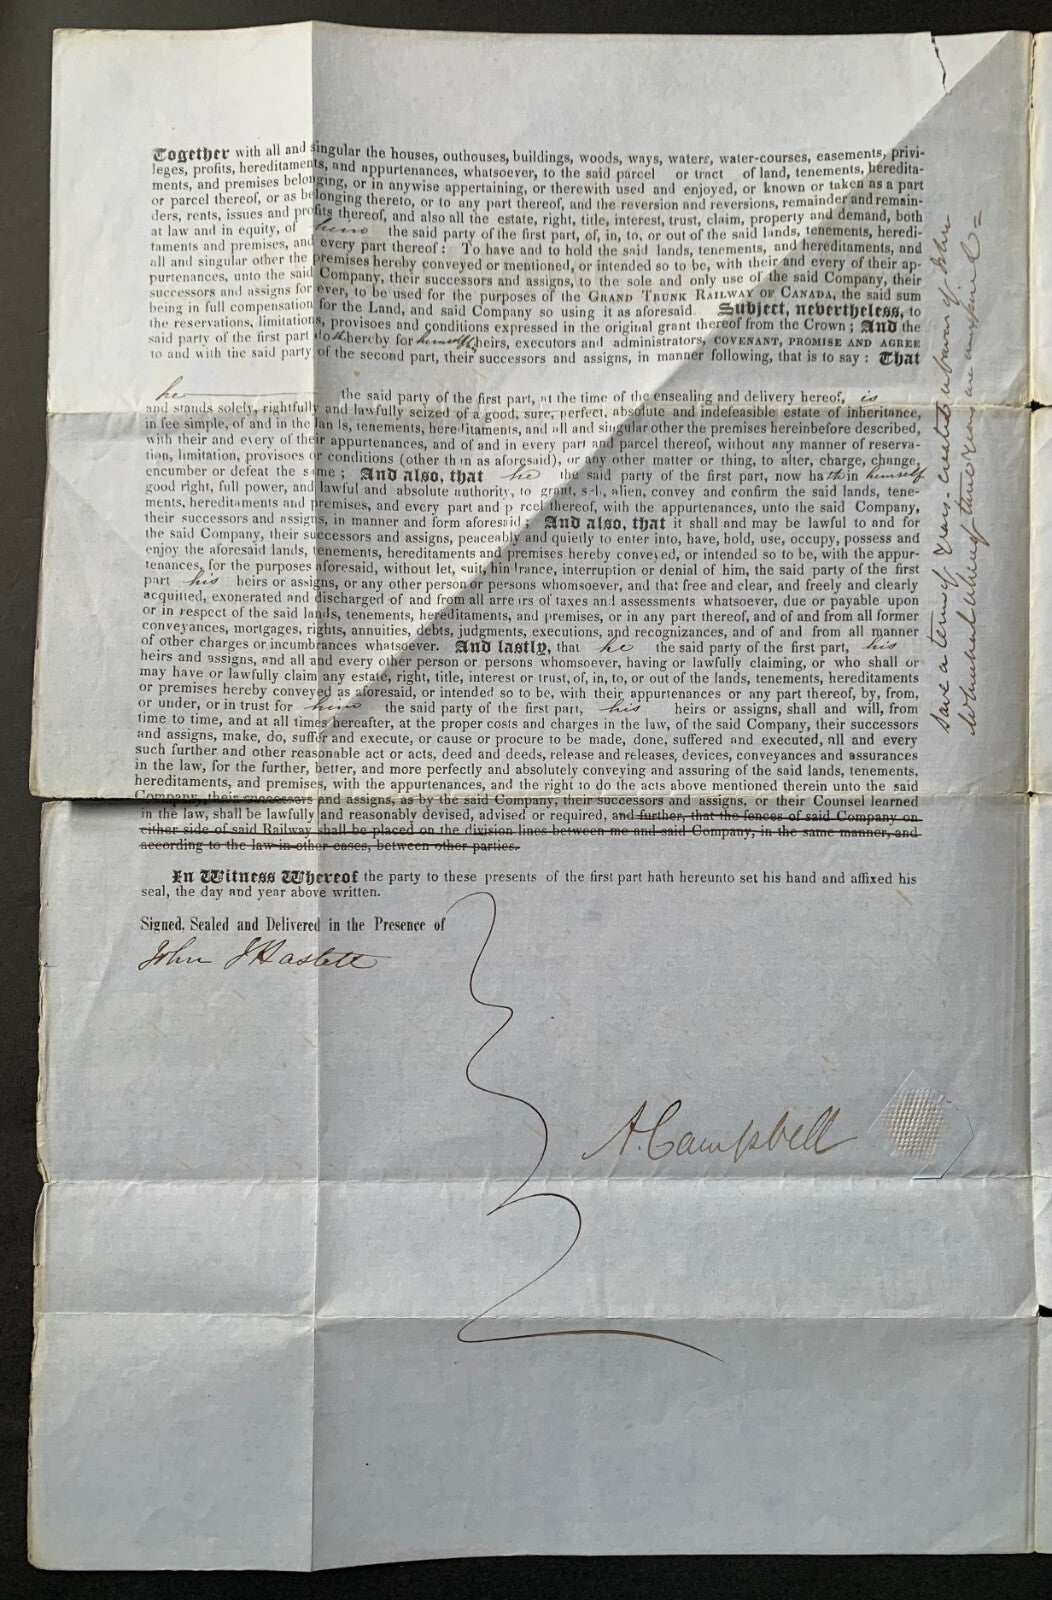 Together with all and singular the houses, outhouses, buildings, woods, ways, waters, water-courses, easements, privi-
leges, profits, hereditaments, and appurtenances, whatsoever, to the said parcel or tract of land, tenements, heredita-
ments, and premises belonging, or in anywise appertaining, or therewith used and enjoyed, or known or taken as a part
or parcel thereof, or as belonging thereto, or to any part thereof, and the reversion and reversions, remainder and remain-
ders, rents, issues and profits thereof, and also all the estate, right, title, interest, trust, claim, property and demand, both
at law and in equity, of him the said party of the first part, of, in, to, or out of the said lands, tenements, heredi-
taments and premises, and every part thereof: To have and to hold the said lands, tenements, and hereditaments, and
all and singular other the premises hereby conveyed or mentioned, or intended so to be, with their and every of their ap-
purtenances, unto the said Company, their successors and assigns, to the sole and only use of the said Company, their
successors and assigns for ever, to be used for the purposes of the GRAND TRUNK RAILWAY OF CANADA, the said sum
being in full compensation for the Land, and said Company so using it as aforesaid. Subject, nevertheless, to
the reservations, limitations, provisoes and conditions expressed in the original grant thereof from the Crown; And the
said party of the first part doth hereby for himself his heirs, executors and administrators, COVENANT, PROMISE AND AGREE
to and with the said party of the second part, their successors and assigns, in manner following, that is to say: That
he the said party of the first part, at the time of the ensealing and delivery hereof, is
and stands solely, rightfully and lawfully seized of a good, sure, perfect, absolute and indefeasible estate of inheritance,
in fee simple, of and in the lands, tenements, hereditaments, and all and singular other the premises hereinbefore described,
with their and every of their appurtenances, and of and in every part and parcel thereof, without any manner of reserva-
tion, limitation, provisoes or conditions (other than as aforesaid), or any other matter or thing, to alter, charge, change,
encumber or defeat the same; And also, that he the said party of the first part, now hath in himself
good right, full power, and lawful and absolute authority, to grant, sell, alien, convey and confirm the said lands, tene-
ments, hereditaments and premises, and every part and parcel thereof, with the appurtenances, unto the said Company,
their successors and assigns, in manner and form aforesaid; And also, that it shall and may be lawful to and for
the said Company, their successors and assigns, peaceably and quietly to enter into, have, hold, use, occupy, possess and
enjoy the aforesaid lands, tenements, hereditaments and premises hereby conveyed, or intended so to be, with the appur-
tenances, for the purposes aforesaid, without let, suit, hindrance, interruption or denial of him, the said party of the first
part his heirs or assigns, or any other person or persons whomsoever, and that free and clear, and freely and clearly
acquitted, exonerated and discharged of and from all arrears of taxes and assessments whatsoever, due or payable upon
or in respect of the said lands, tenements, hereditaments, and premises, or in any part thereof, and of and from all former
conveyances, mortgages, rights, annuities, debts, judgments, executions, and recognizances, and of and from all manner
of other charges or incumbrances whatsoever. And lastly, that he the said party of the first part, his
heirs and assigns, and all and every other person or persons whomsoever, having or lawfully claiming, or who shall or
may have or lawfully claim any estate, right, title, interest or trust, of, in, to, or out of the lands, tenements, hereditaments
or premises hereby conveyed as aforesaid, or intended so to be, with their appurtenances or any part thereof, by, from,
or under, or in trust for him the said party of the first part, his heirs or assigns, shall and will, from
time to time, and at all times hereafter, at the proper costs and charges in the law, of the said Company, their successors
and assigns, make, do, suffer and execute, or cause or procure to be made, done, suffered and executed, all and every
such further and other reasonable act or acts, deed and deeds, release and releases, devices, conveyances and assurances
in the law, for the further, better, and more perfectly and absolutely conveying and assuring of the said lands, tenements,
hereditaments, and premises, with the appurtenances, and the right to do the acts above mentioned therein unto the said
Company, their successors and assigns, as by the said Company, their successors and assigns, or their Counsel learned
in the law, shall be lawfully and reasonably devised, advised or required, and further, that the fences of said Company on
either side of said Railway shall be placed on the division lines between me and said Company, in the same manner, and
according to the law in other cases, between other parties.
In Witness Whereof the party to these presents of the first part hath hereunto set his hand and affixed his
seal, the day and year above written.
Signed, Sealed and Delivered in the Presence of
John J Haslett
A. Campbell
Save a term of years created in favour of John
three years are unexpired